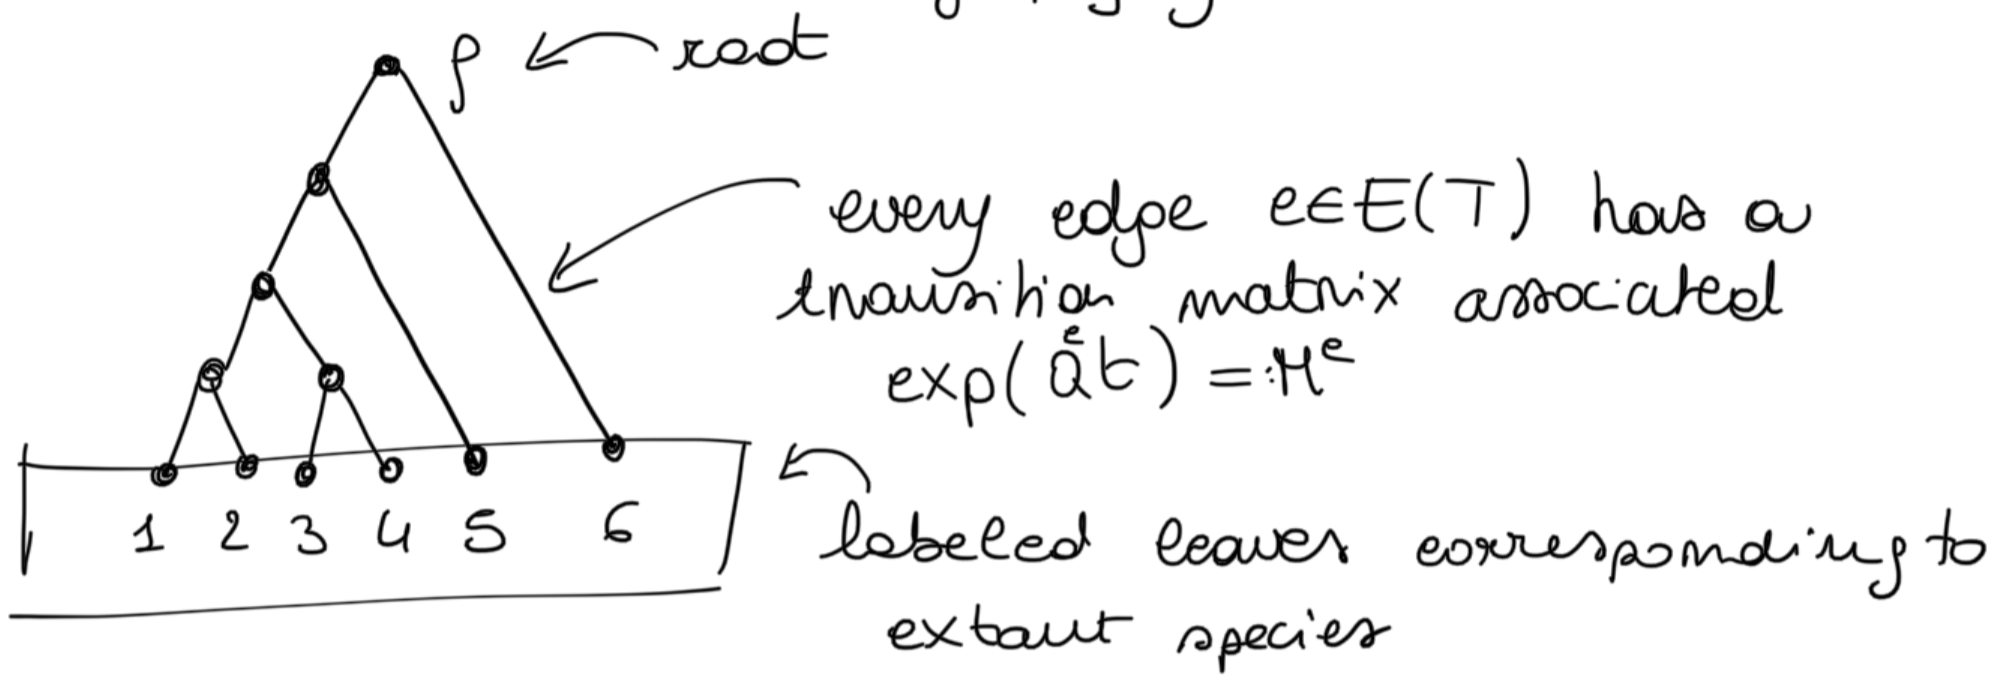 ρ ← root
every edge e∈E(T) has a
transition matrix associated
exp(Qᵉt) =: Mᵉ
1 2 3 4 5 6
labeled leaves corresponding to
extant species